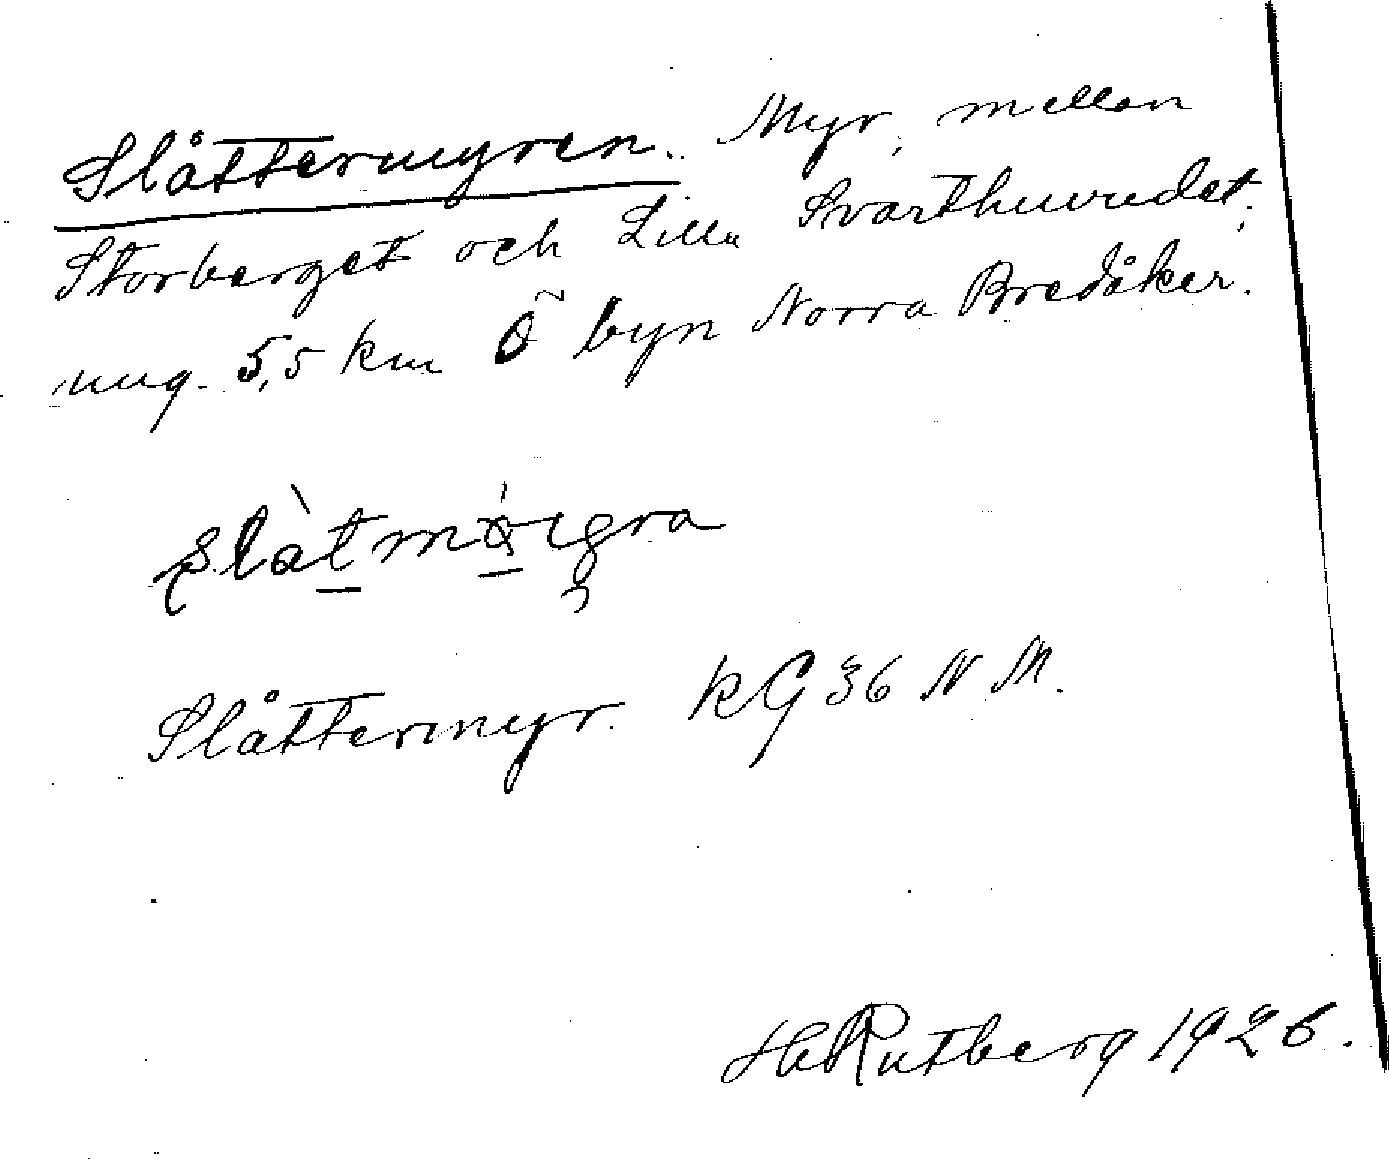 Slåttermyren. Myr, mellan
Storberget och Lilla Svarthuvudet,
ung. 5,5 km Ö byn Norra Bredåker.
Slåttermyr. KG 36 N M.
H Rutberg 1926.